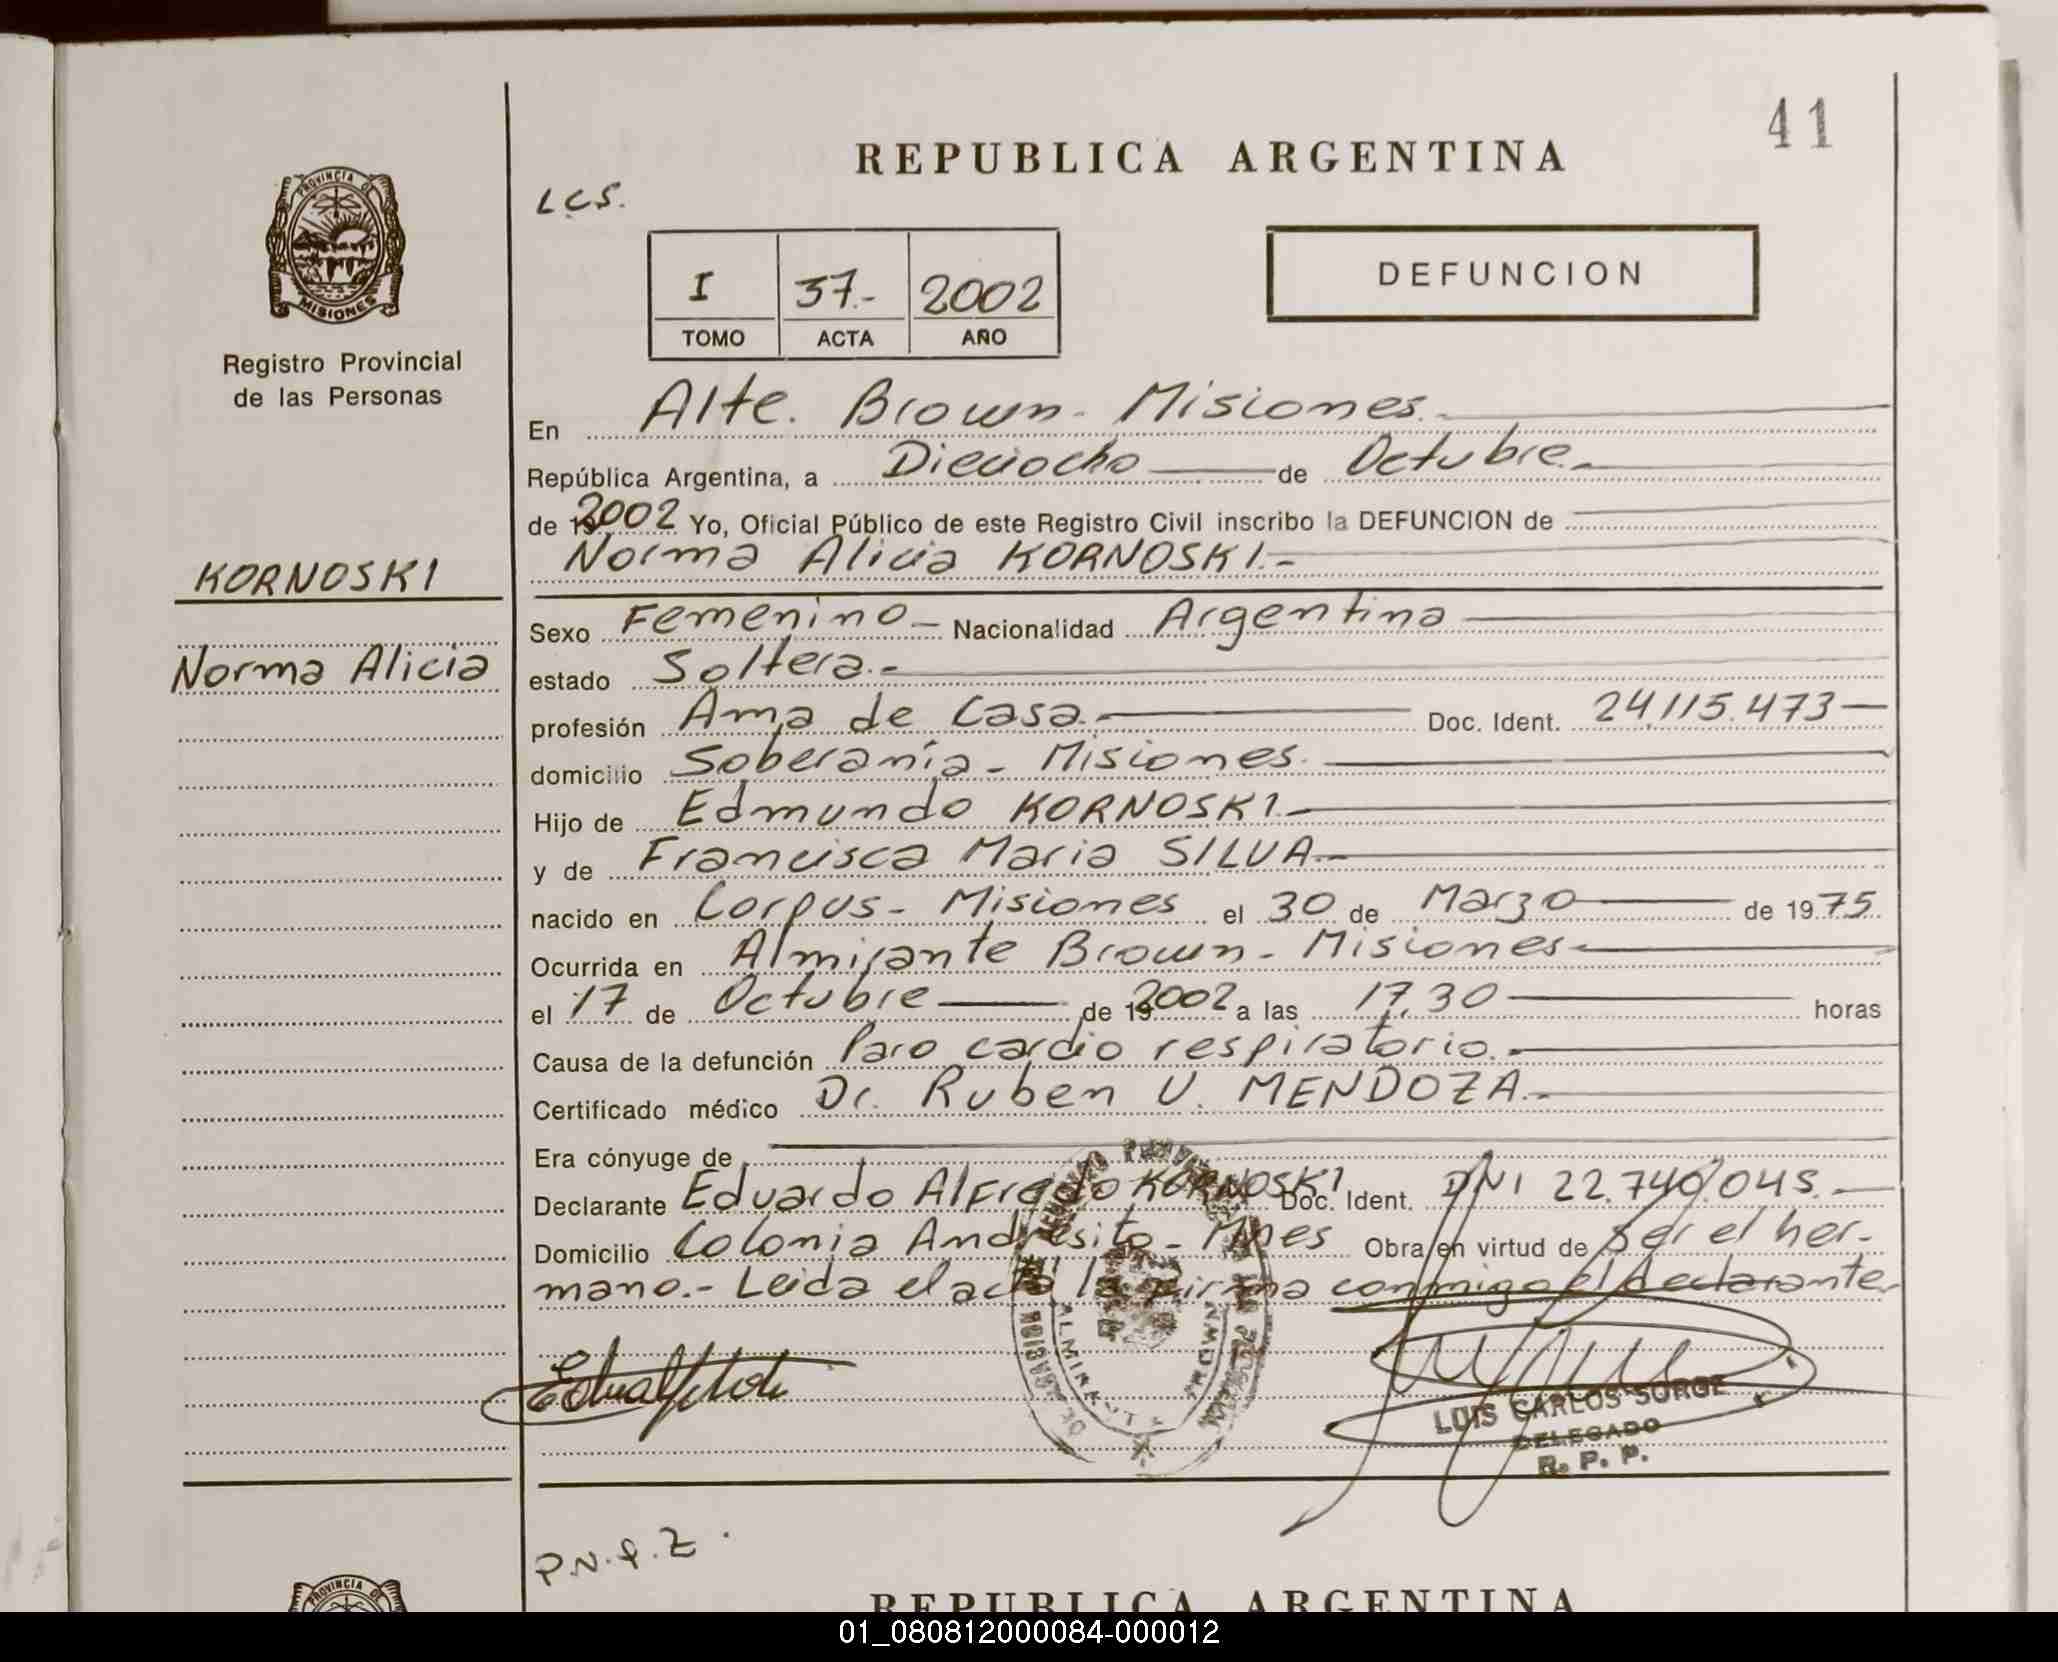 41
REPUBLICA ARGENTINA
L.C.S.
PROVINCIA DE
MISIONES
Registro Provincial
de las Personas
I 37.- 2002
TOMO ACTA AÑO
DEFUNCION
En Alte. Brown - Misiones.
República Argentina, a Dieciocho de Octubre.
de 192002 Yo, Oficial Público de este Registro Civil inscribo la DEFUNCION de
Norma Alicia KORNOSKI.-
KORNOSKI
Norma Alicia
Sexo Femenino - Nacionalidad Argentina
estado Soltera.-
profesión Ama de Casa.- Doc. Ident. 24.115.473
domicilio Soberanía - Misiones.
Hijo de Edmundo KORNOSKI.-
y de Francisca Maria SILVA.-
nacido en Corpus - Misiones el 30 de Marzo de 1975
Ocurrida en Almirante Brown - Misiones
el 17 de Octubre de 192002 a las 17,30 horas
Causa de la defunción Paro cardio respiratorio.-
Certificado médico Dr. Ruben V. MENDOZA.-
Era cónyuge de
Declarante Eduardo Alfredo KORNOSKI Doc. Ident. DNI 22.740.045.-
Domicilio Colonia Andresito - Mnes Obra en virtud de ser el her-
mano.- Leida el acta la firma conmigo el declarante
ALMIRANTE BROWN
LUIS CARLOS SORGE
DELEGADO
R. P. P.
REPUBLICA ARGENTINA
PROVINCIA DE
01_080812000084-000012